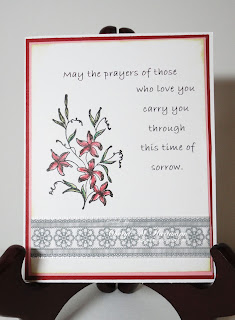 May the prayers of those
who love you
carry you
through
this time of
sorrow.